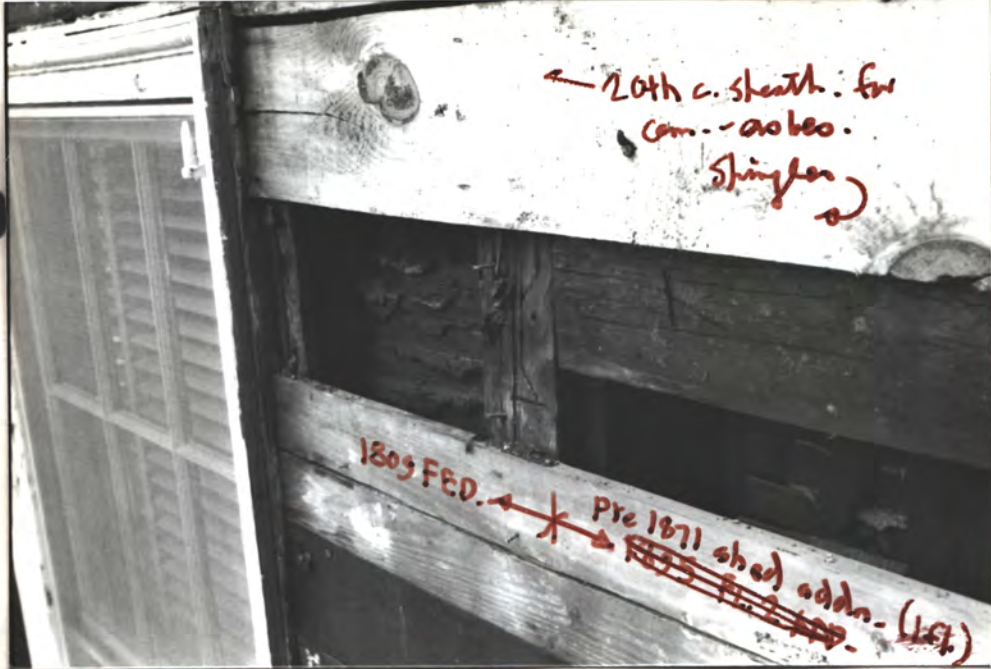 ← 20th c. sheath. for
cem. - asbes.
Shingles
180s FED. ↔ Pre 1871 shed addn. (1 ft.)